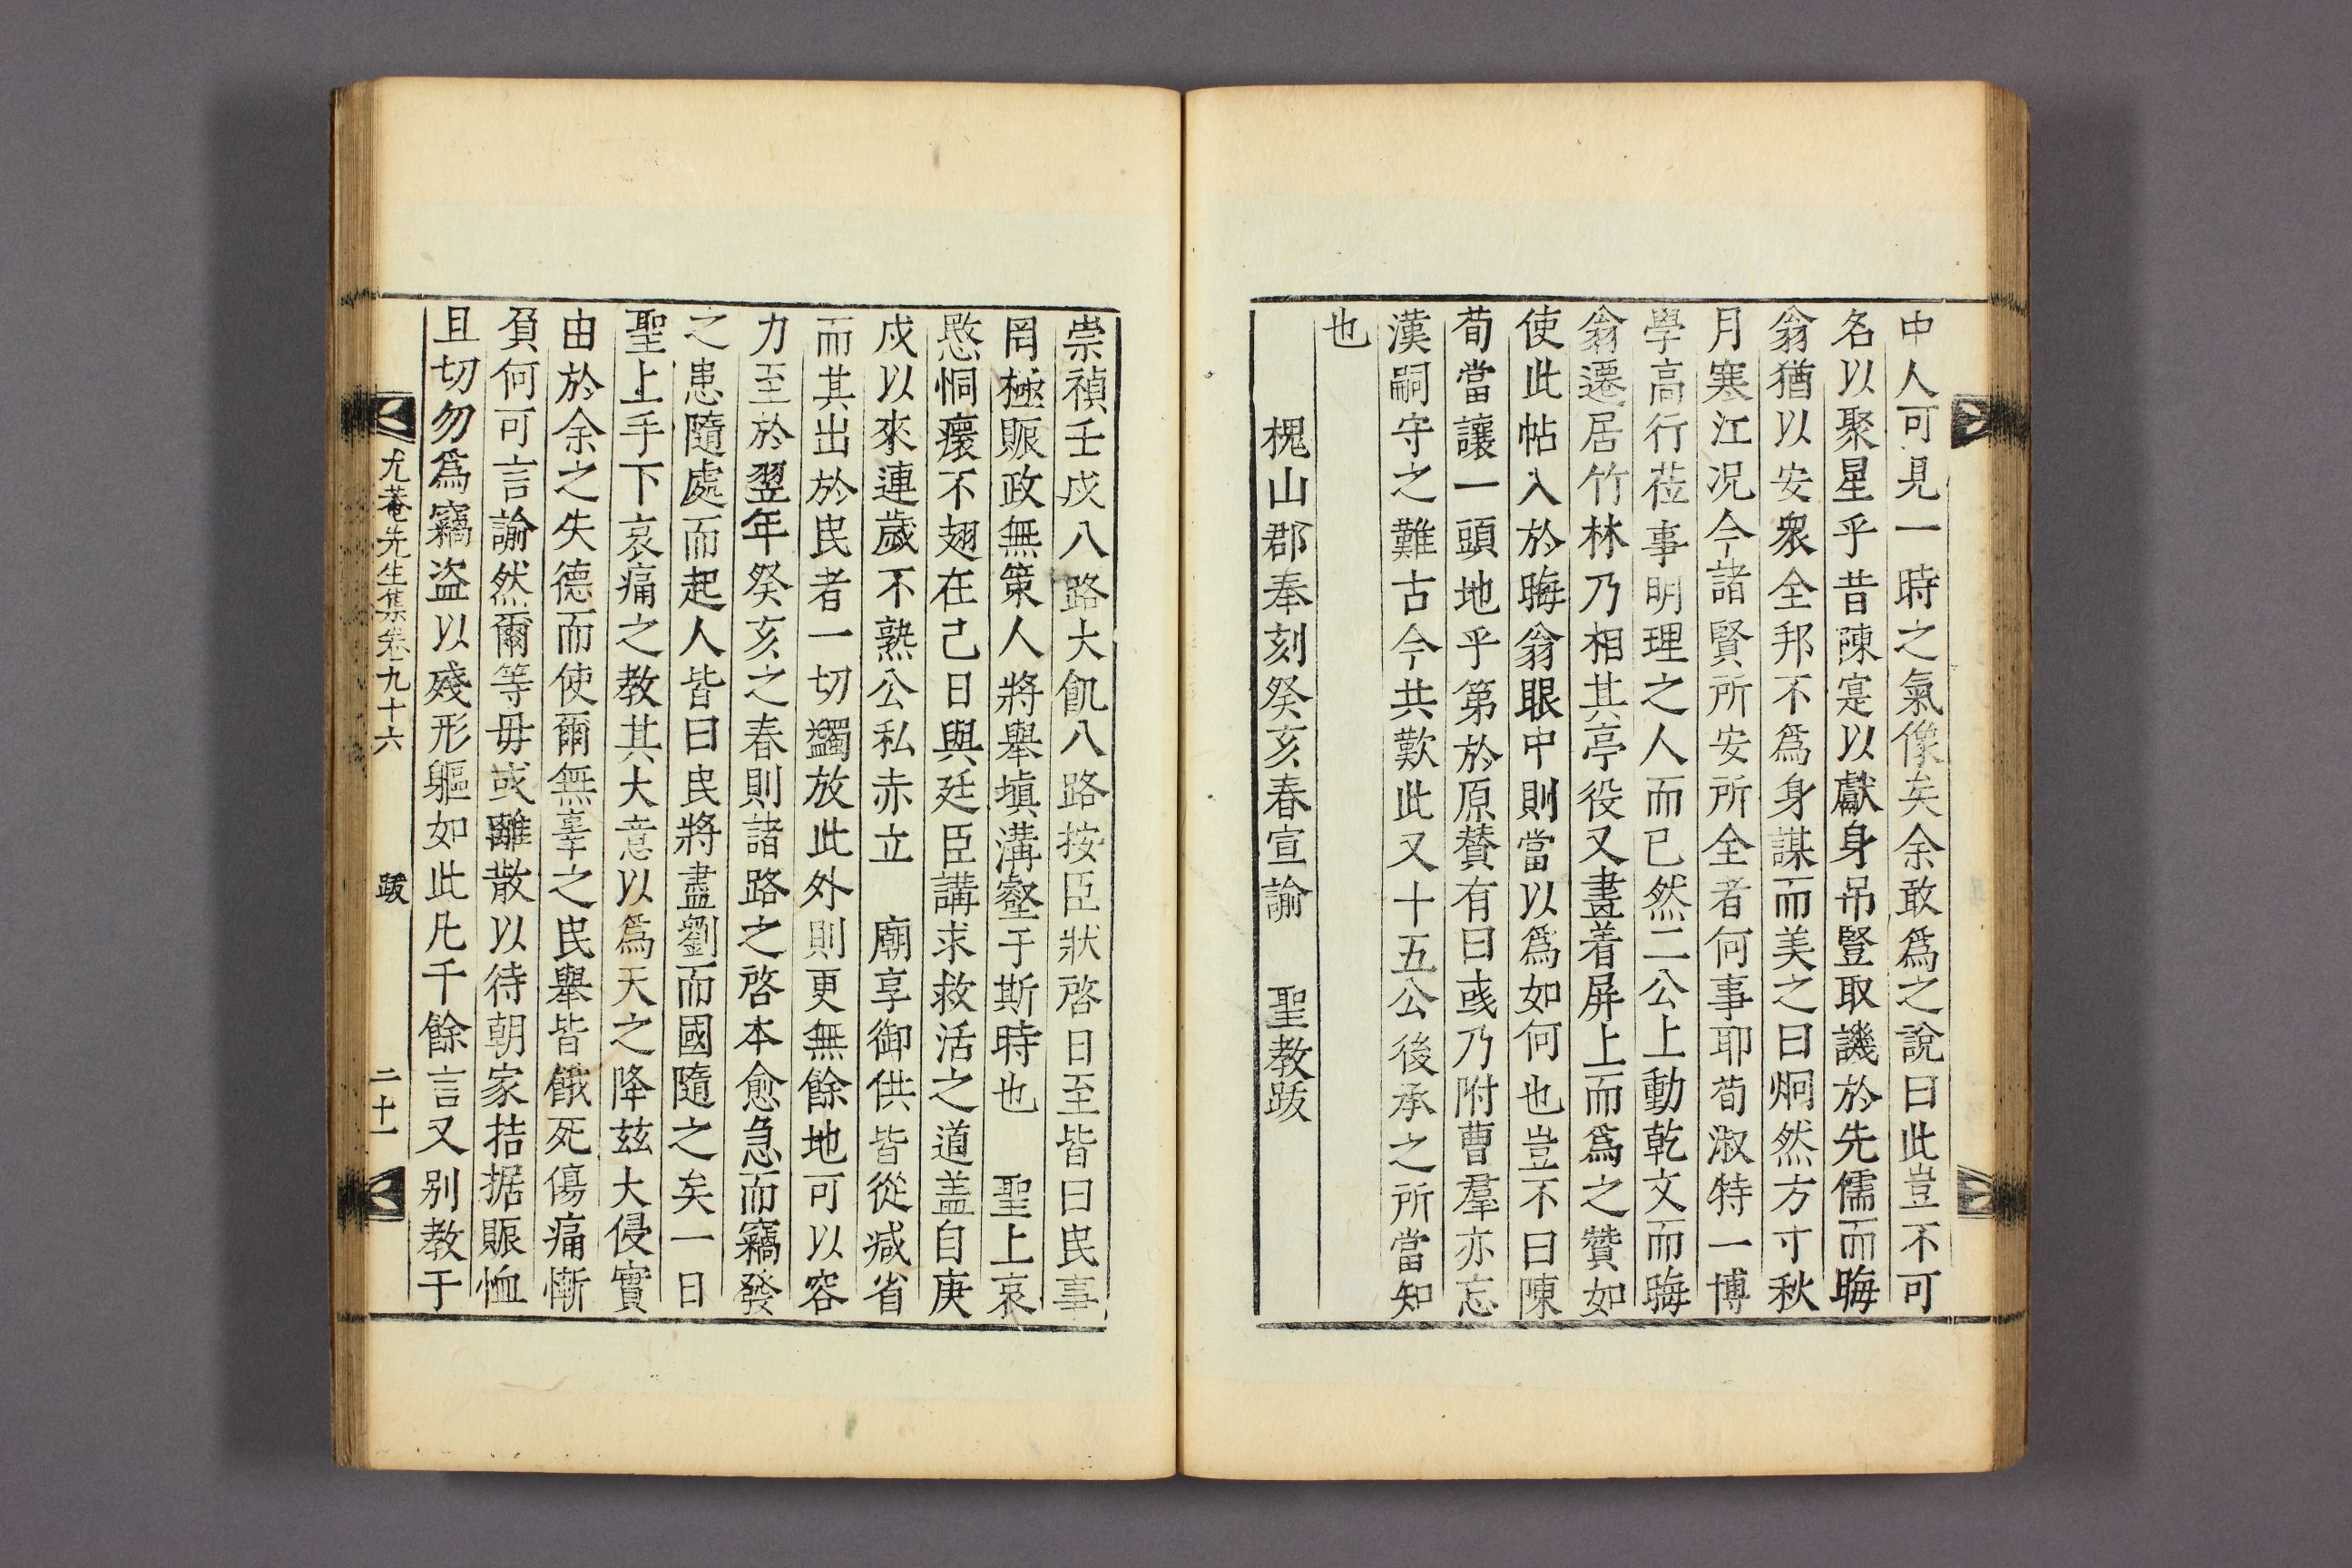 中人可見一時之氣像矣余敢爲之說曰此豈不可
名以聚星乎昔陳寔以獻身吊豎取譏於先儒而晦
翁猶以安衆全邦不爲身謀而美之曰炯然方寸秋
月寒江况今諸賢所安所全者何事耶荀淑特一博
學高行莅事明理之人而已然二公上動乾文而晦
翁遷居竹林乃相其亭役又畫着屛上而爲之贊如
使此帖入於晦翁眼中則當以爲如何也豈不曰陳
荀當讓一頭地乎第於原贊有曰或乃附曹羣亦忘
漢嗣守之難古今共歎此又十五公後承之所當知
也
槐山郡奉刻癸亥春宣諭 聖教跋
崇禎壬戌八路大飢八路按臣狀啓日至皆曰民事
罔極賑政無策人將舉塡溝壑于斯時也 聖上哀
愍恫瘝不翅在己日與廷臣講求救活之道盖自庚
戌以來連歲不熟公私赤立 廟享御供皆從减省
而其出於民者一切蠲放此外則更無餘地可以容
力至於翌年癸亥之春則諸路之啓本愈急而竊發
之患隨處而起人皆曰民將盡劉而國隨之矣一日
聖上手下哀痛之教其大意以爲天之降玆大侵實
由於余之失德而使爾無辜之民舉皆餓死傷痛慚
負何可言諭然爾等毋或離散以待朝家拮据賑恤
且切勿爲竊盗以殘形軀如此凡千餘言又别教于
尤菴先生集卷九十六 跋 二十一